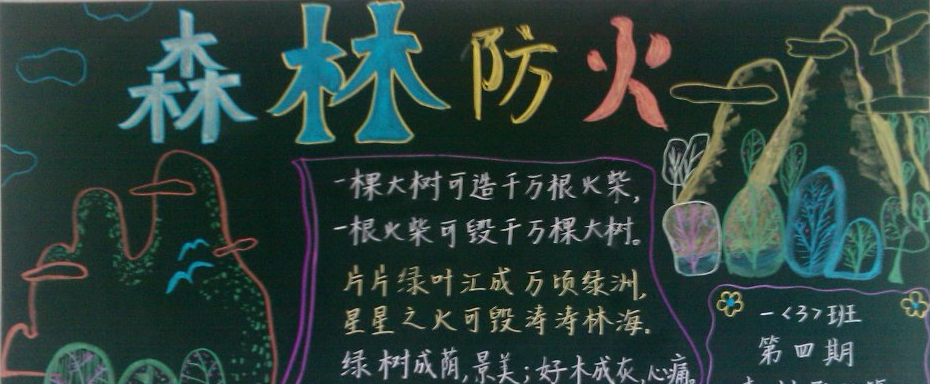 森林防火
一棵大树可造千万根火柴,
一根火柴可毁千万棵大树。
片片绿叶汇成万顷绿洲,
星星之火可毁涛涛林海.
绿树成荫,景美;好木成灰,心痛.
一<3>班
第四期